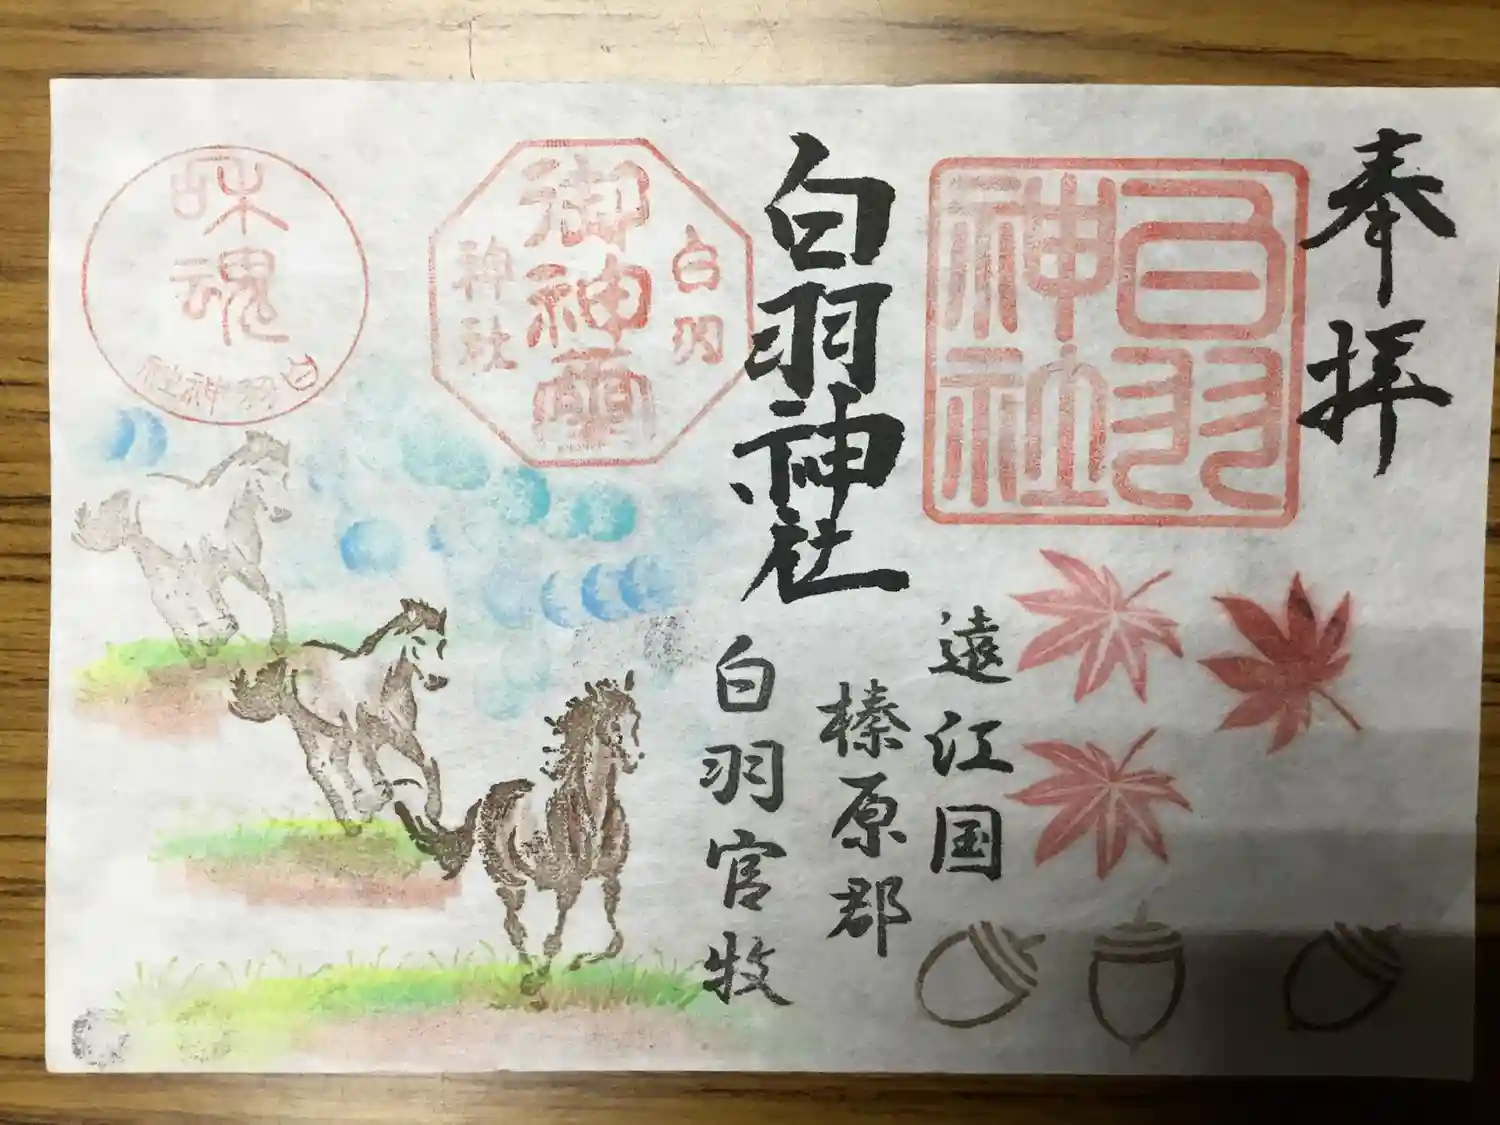 奉拝
白羽神社
白羽神社
遠江国
榛原郡
白羽官牧
白羽
御神霊
神社
味魂
白羽神社